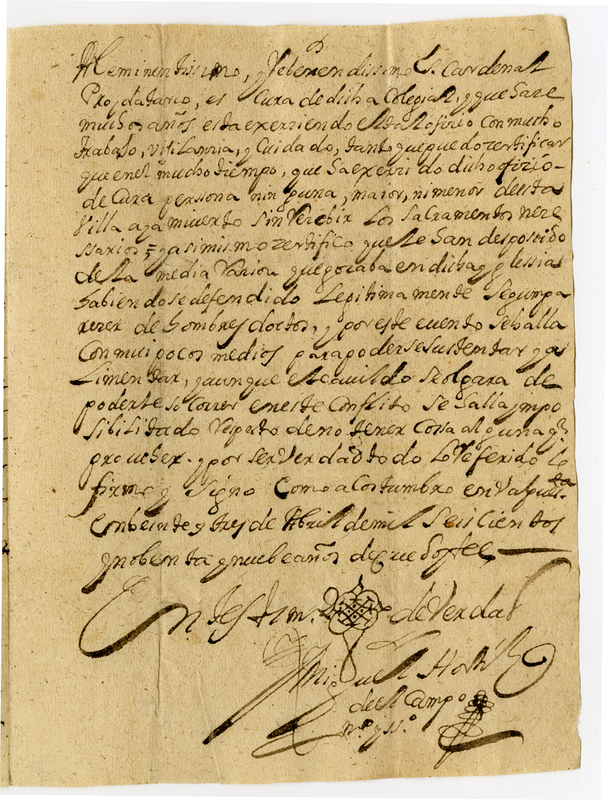 Al eminentissimo, y Reberendissimo S. Cardenal
Prodatario, es Cura de dicha Colegial, y que haze
muchos años esta exerziendo el tal ofizio con mucho
trabajo, vijilanzia, y Cuidado, tanto que puedo zertificar
que en el mucho tiempo, que ha exerzido dicho ofizio
de Cura persona ninguna, maior, ni menor desta
Villa aya muerto sin Rezebir los sacramentos neze
ssarios = y asimismo zertifico que le han desposeido
de la media Razion que gozaba en dicha yglessia
habiendose defendido legitimamente segun pa
rezer de hombres doctos, y por este evento se halla
con mui pocos medios para poderse sustentar y a
limentar, y aunque el cavildo se olgara de
poderle socorrer en este conflito se halla ympo
sibilitado respeto de no tener cosa alguna q
proveher. y por ser verdad todo lo referido lo
firmo y signo como acostumbro en Valpuesta
en beinte y tres de Abril de mil seiscientos
y nobenta y nuebe años de que doi fee
En testim.o de Verdad
Miguel Hortiz
del Campo
n.o y ss.o